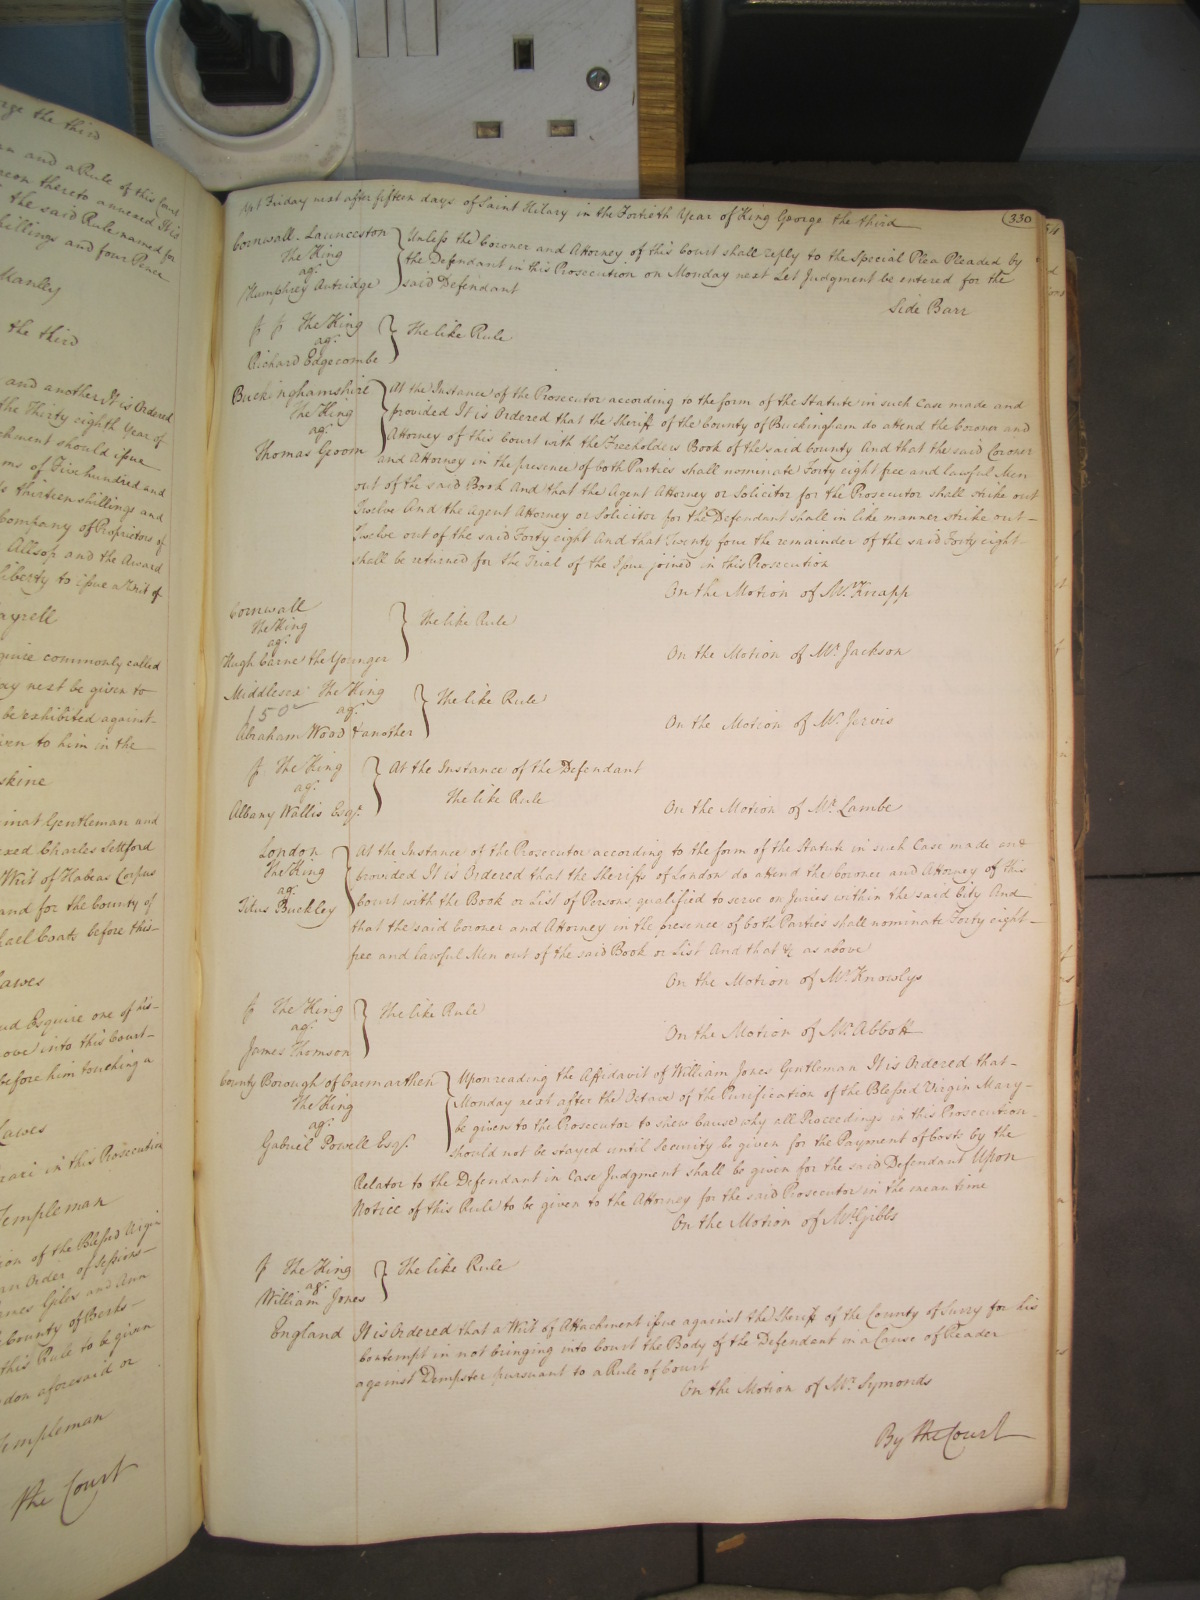 rge the third
and a Rule of this Court
thereto annexed It is
the said Rule named for
hillings and four Pence
Manley
the third
and another It is Ordered
the Thirty eighth Year of
chment should issue
ms of Five hundred and
thirteen shillings and
Company of Proprietors of
Allsop and the Award
liberty to issue a Writ of
ayrell
quire commonly called
ay next be given to
be exhibited against
iven to him in the
skine
Gentleman and
exed Charles Settford
Writ of Habeas Corpus
and for the County of
hael Coats before this
Lawes
ud Esquire one of his
ove into this Court
before him touching a
Lawes
rari in this Prosecution
Templeman
ion of the Blessed Virgin
an Order of Sessions
ames Giles and Ann
County of Berks
this Rule to be given
ndon aforesaid or
Templeman
the Court
Yet Friday next after fifteen days of Saint Hilary in the Fortieth Year of King George the third
330
Cornwall. Launceston
The King
agt.
Humphrey Autridge
Unless the Coroner and Attorney of this Court shall reply to the Special Plea Pleaded by
the Defendant in this Prosecution on Monday next Let Judgment be entered for the
said Defendant
Side Barr
The King
agt.
Richard Edgecombe
The like Rule
Buckinghamshire
The King
agt.
Thomas Groom
At the Instance of the Prosecutor according to the form of the Statute in such Case made and
provided It is Ordered that the Sheriff of the County of Buckingham do attend the Coroner and
Attorney of this Court with the Freeholders Book of the said County And that the said Coroner
and Attorney in the presence of both Parties shall nominate Forty eight free and lawful Men
out of the said Book And that the Agent Attorney or Solicitor for the Prosecutor shall strike out
Twelve And the Agent Attorney or Solicitor for the Defendant shall in like manner strike out
Twelve out of the said Forty eight And that Twenty four the remainder of the said Forty eight
shall be returned for the Trial of the Issue joined in this Prosecution
On the Motion of Mr. Knapp
Cornwall
The King
agt.
Hugh Carne the Younger
The like Rule
On the Motion of Mr. Jackson
Middlesex The King
150 agt.
Abraham Wood & another
The like Rule
On the Motion of Mr. Jervis
The King
agt.
Albany Wallis Esqr.
At the Instance of the Defendant
The like Rule
On the Motion of Mr. Lambe
London
The King
agt.
Titus Buckley
At the Instance of the Prosecutor according to the form of the Statute in such Case made and
provided It is Ordered that the Sheriffs of London do attend the Coroner and Attorney of this
Court with the Book or List of Persons qualified to serve on Juries within the said City And
that the said Coroner and Attorney in the presence of both Parties shall nominate Forty eight
free and lawful Men out of the said Book or List And that &c as above
On the Motion of Mr. Knowlys
The King
agt.
James Thomson
The like Rule
On the Motion of Mr. Abbott
County Borough of Carmarthen
The King
agt.
Gabriel Powell Esqr.
Upon reading the Affidavit of William Jones Gentleman It is Ordered that
Monday next after the Octave of the Purification of the Blessed Virgin Mary
be given to the Prosecutor to shew Cause why all Proceedings in this Prosecution
should not be stayed until Security be given for the Payment of Costs by the
Relator to the Defendant in Case Judgment shall be given for the said Defendant Upon
Notice of this Rule to be given to the Attorney for the said Prosecutor in the mean time
On the Motion of Mr. Gibbs
The King
agt.
William Jones
The like Rule
England
It is Ordered that a Writ of Attachment issue against the Sheriff of the County of Surry for his
Contempt in not bringing into Court the Body of the Defendant in a Cause of Reader
against Dempster pursuant to a Rule of Court
On the Motion of Mr. Symonds
By the Court